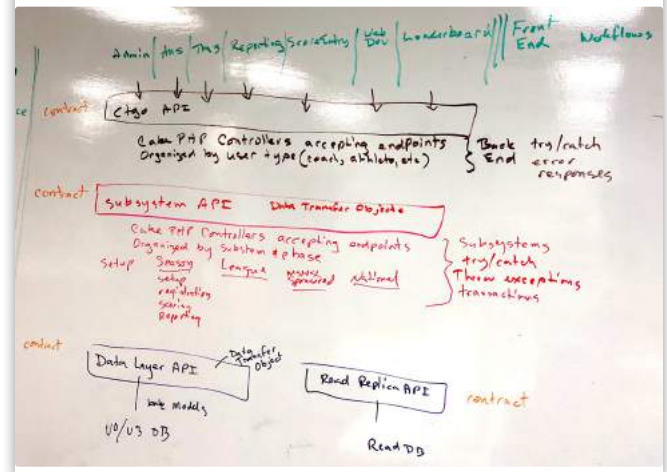 Admin | Ans | Tms | Reporting | ScoreEntry | Web Dev | Leaderboard ||| Front End Workflows
contract
API
Cake PHP Controllers accepting endpoints
Organized by user type (coach, athlete, etc)
Back End
try/catch
error
responses
contract
subsystem API
Data Transfer Objects
Cake PHP Controllers accepting endpoints
Organized by
phase
Setup
Season
League
National
setup
registration
scoring
Reporting
Subsystems
try/catch
Throw exceptions
transactions
contract
Data Layer API
Data Transfer Object
models
DB
Read Replica API
contract
Read DB